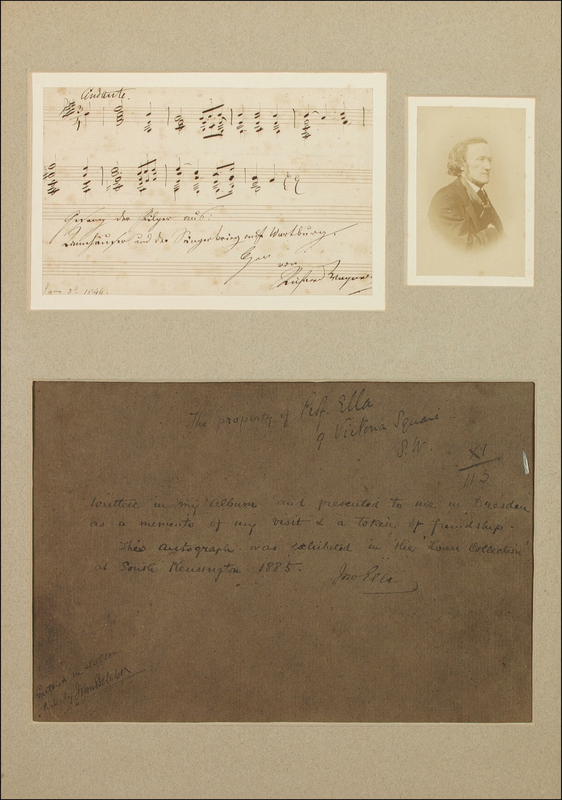 Andante.
Gesang der Pilger aus:
Tannhäuser und der Sängerkrieg auf Wartburg.
von
Richard Wagner
1846.
The property of Prof. Ella
9 Victoria Square
S.W.
XI
113
Written in my album and presented to me in Dresden
as a memento of my visit & a token of friendship.
This autograph was exhibited in the "Loan Collection"
at South Kensington 1885. Jno Ella